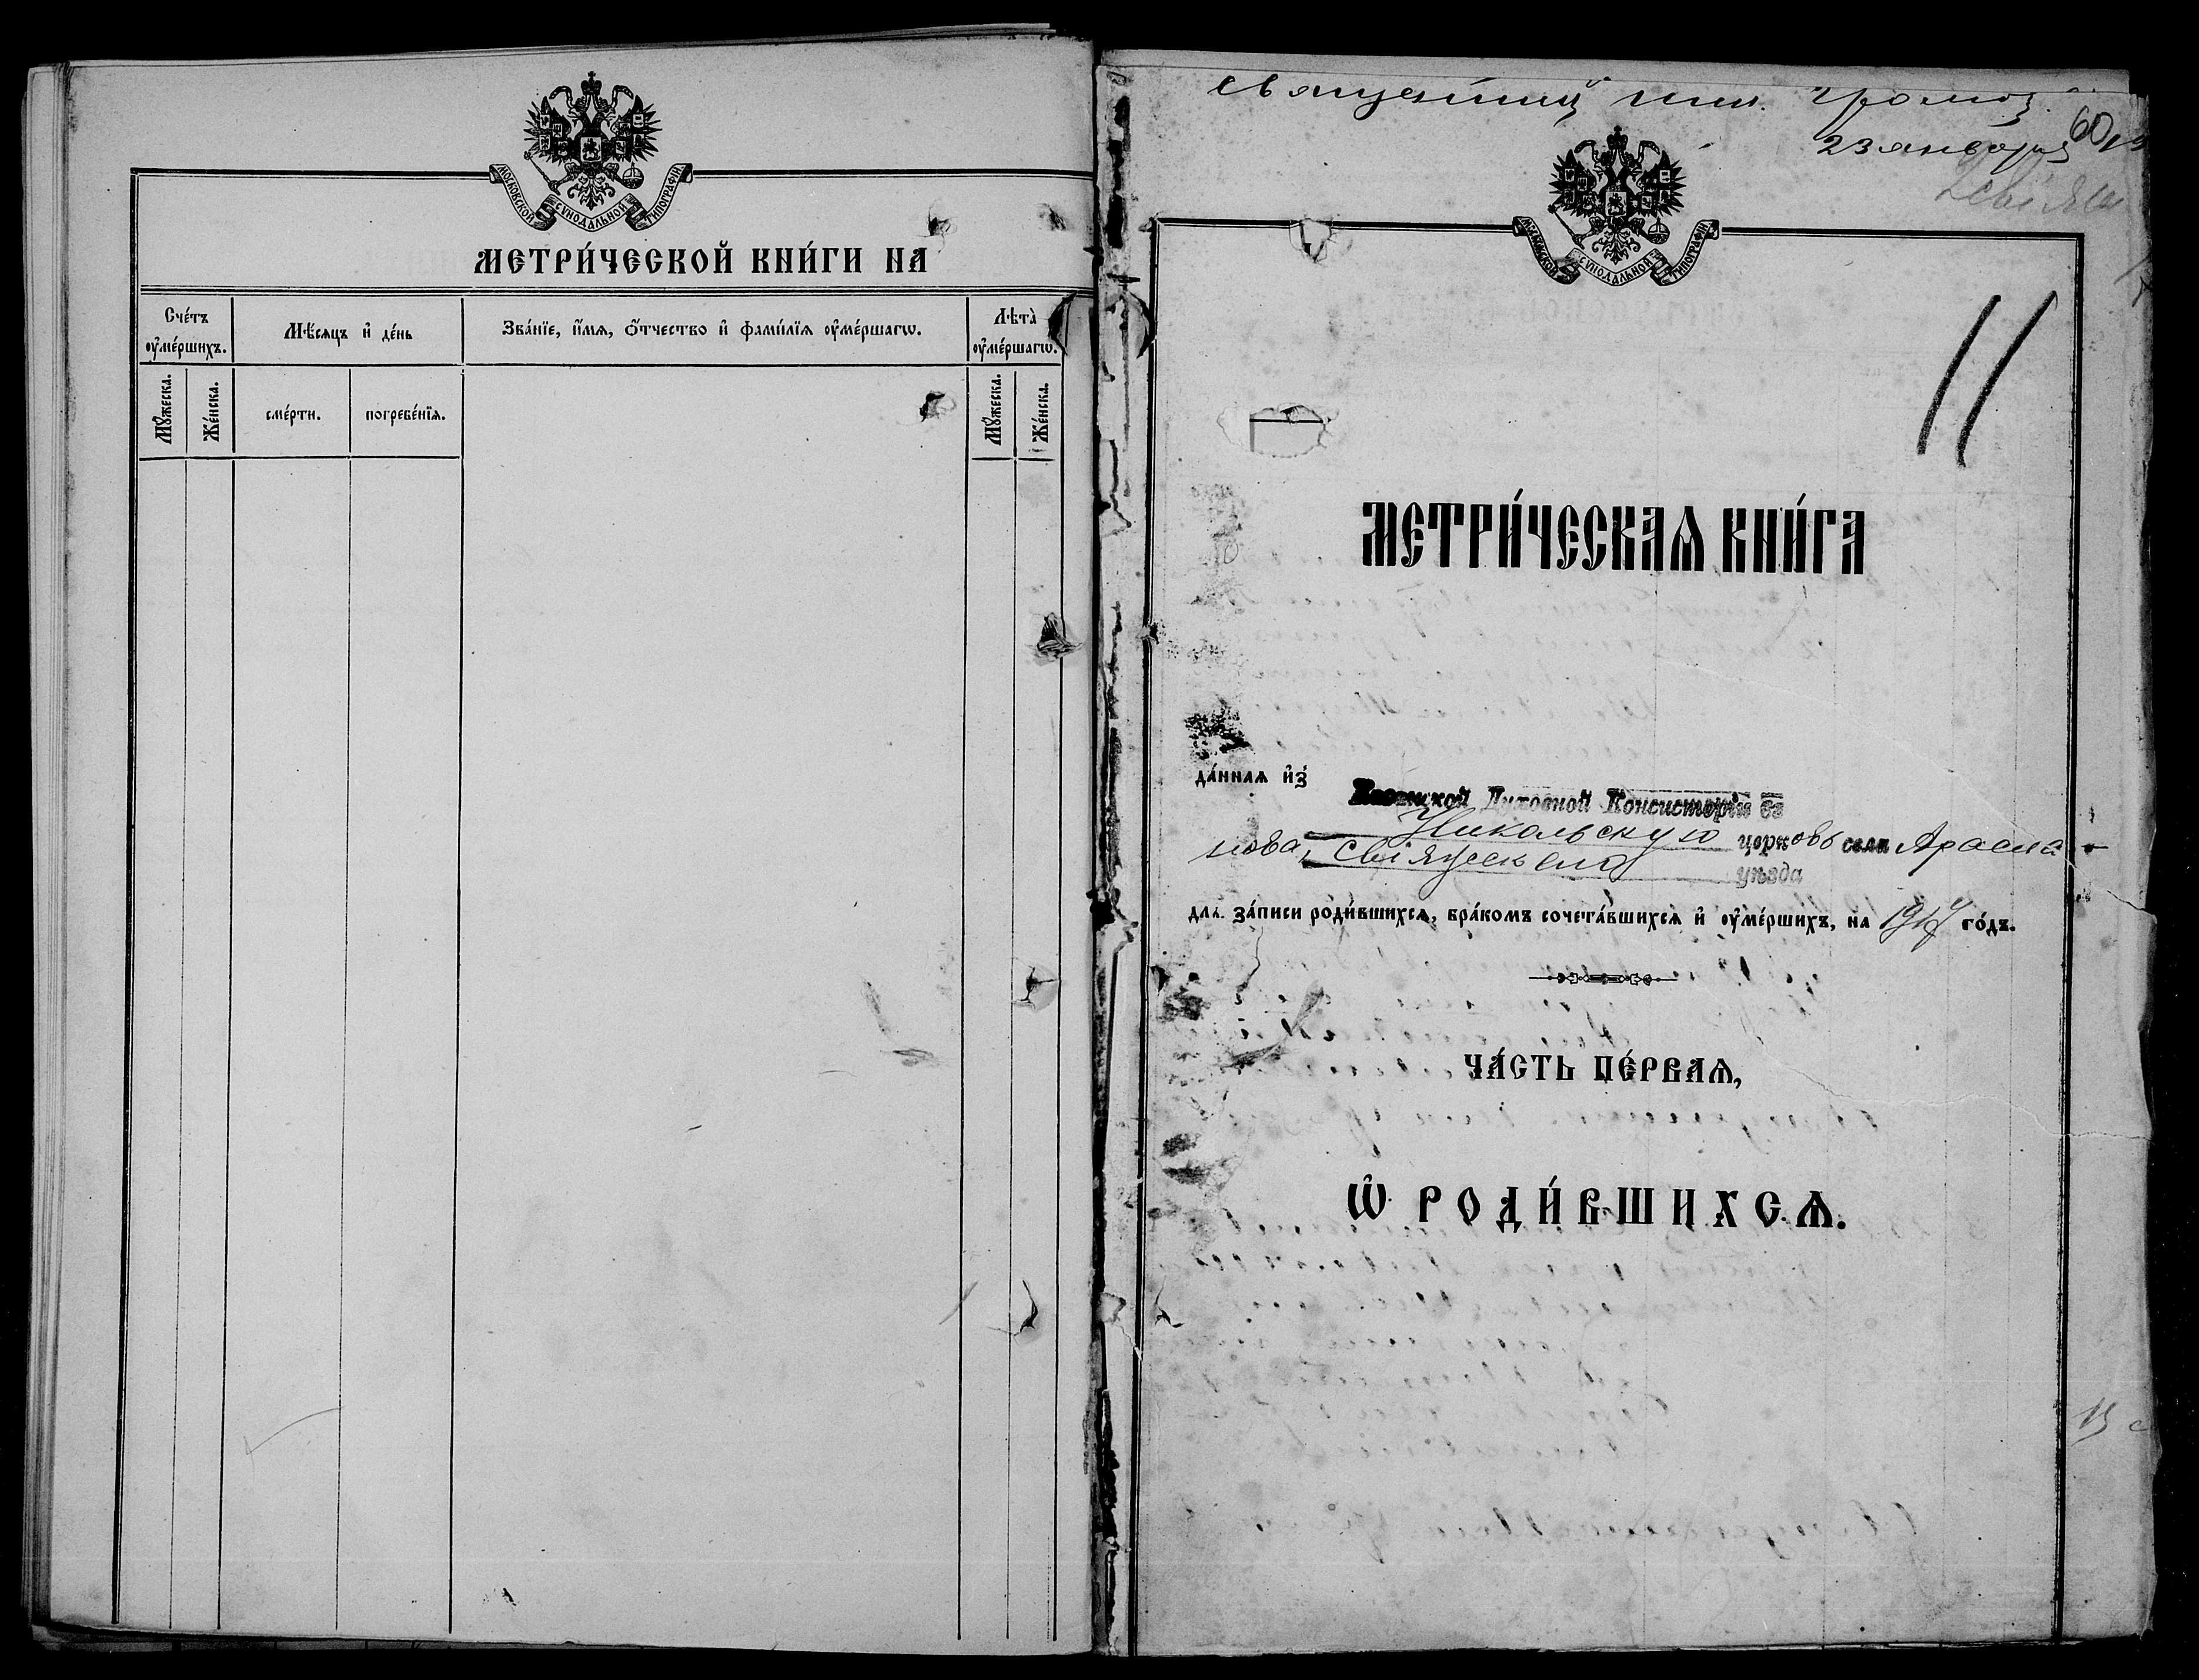 МОСКОВСКОЙ СѴНОДАЛЬНОЙ ТИПОГРАФІИ
МЕТРИ́ЧЕСКОЙ КНИ́ГИ НА
Сче́тъ ᲂу҆ме́ршихъ.
Мѣ́сяцъ и҆ де́нь
Зва́нїе, и҆́мѧ, ѻ҆́тчество и҆ фами́лїѧ ᲂу҆ме́ршагѡ.
Лѣ̑та ᲂу҆ме́ршагѡ.
Мꙋ́жеска.
Же́нска.
сме́рти.
погребе́нїѧ.
Мꙋ́жеска.
Же́нска.
23 января
60
МОСКОВСКОЙ СѴНОДАЛЬНОЙ ТИПОГРАФІИ
11
МЕТРИ́ЧЕСКАѦ КНИ́ГА
да́ннаѧ и҆з̾
Казанской Духовной Консисторіи въ
Никольскую церковь села Арасла-
нова, Свіяжскаго уѣзда
длѧ за́писи роди́вшихсѧ, бра́комъ сочета́вшихсѧ и҆ ᲂу҆ме́ршихъ, на 1917 го́дъ.
ЧА́СТЬ ПЕ́РВАѦ,
Ѡ҆ РОДИ́ВШИХСѦ.